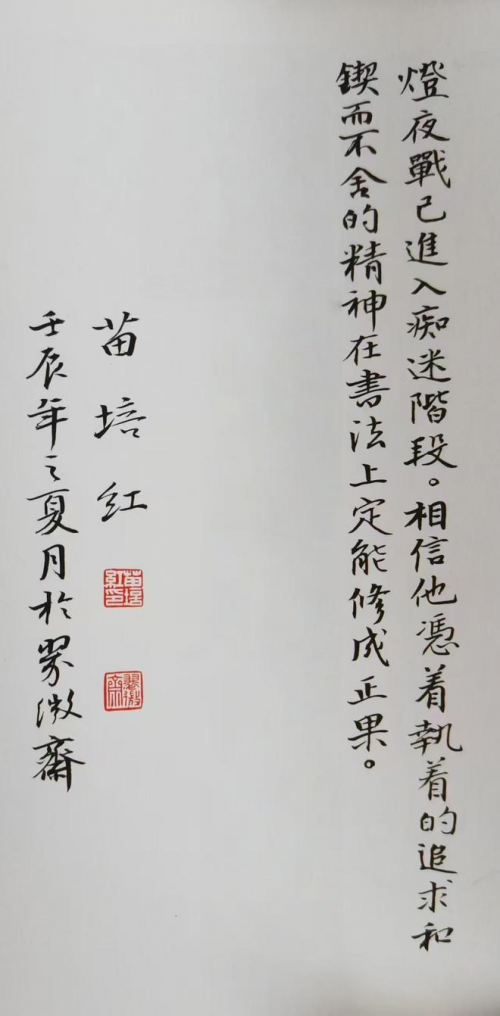 燈夜戰已進入痴迷階段。相信他憑着執着的追求和
鍥而不舍的精神在書法上定能修成正果。
苗培红
壬辰年之夏月於翠微齋
苗培红印
翠微齋